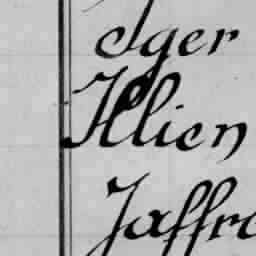 Iger
Illien
Jaffro